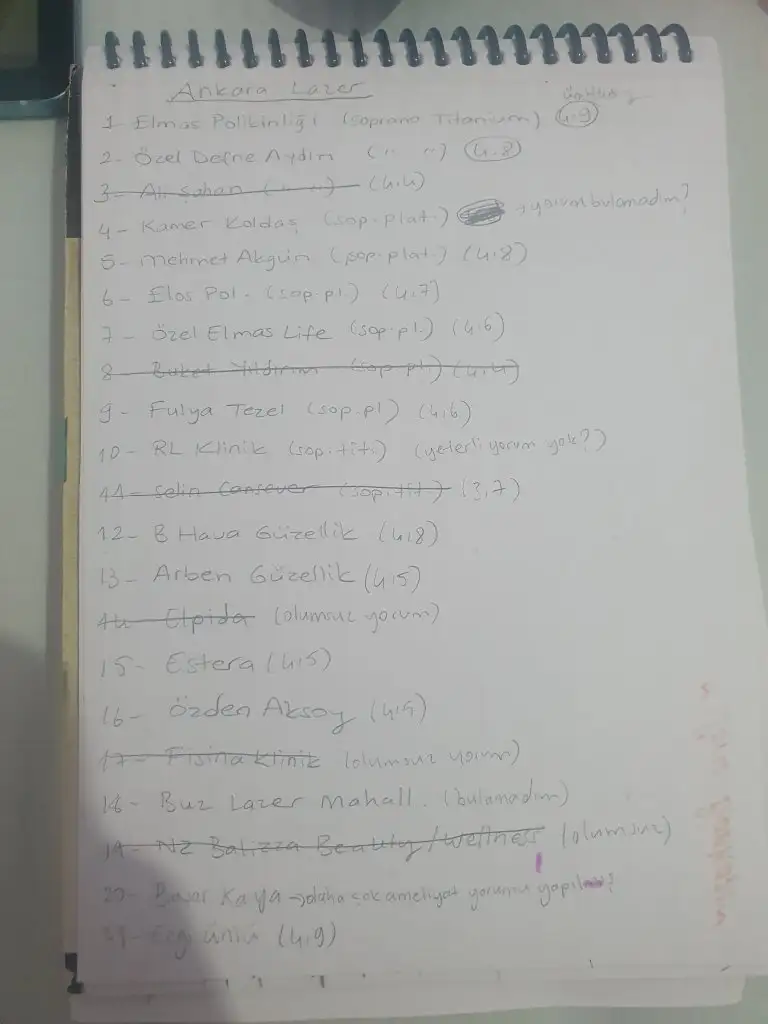 Ankara Lazer
1- Elmas Polikinliği (soprano Titanium) (4.9)
2- Özel Defne Aydın (" ") (4.8)
3- Ali Şahan (" ") (4.4)
4- Kamer Koldaş (sop.plat.) → yorum bulamadım?
5- Mehmet Akgün (sop.plat.) (4.8)
6- Elos Pol. (sop.pl.) (4.7)
7- Özel Elmas Life (sop.pl.) (4.6)
8- Buket Yıldırım (sop pl.) (4.4)
9- Fulya Tezel (sop.pl) (4.6)
10- RL Klinik (sop.tit.) (yeterli yorum yok?)
11- Selin Cansever (sop.tit.) (3,7)
12- B Hava Güzellik (4.8)
13- Arben Güzellik (4.5)
14- Elpida (olumsuz yorum)
15- Estera (4.5)
16- Özden Aksoy
17- Fisina Klinik (olumsuz yorum)
18- Buz Lazer Mahall. (bulamadım)
19- NZ Balizza Beauty/Wellness (olumsuz)
20- Kaya → daha çok ameliyat yorumu
21- ünlü (4.9)